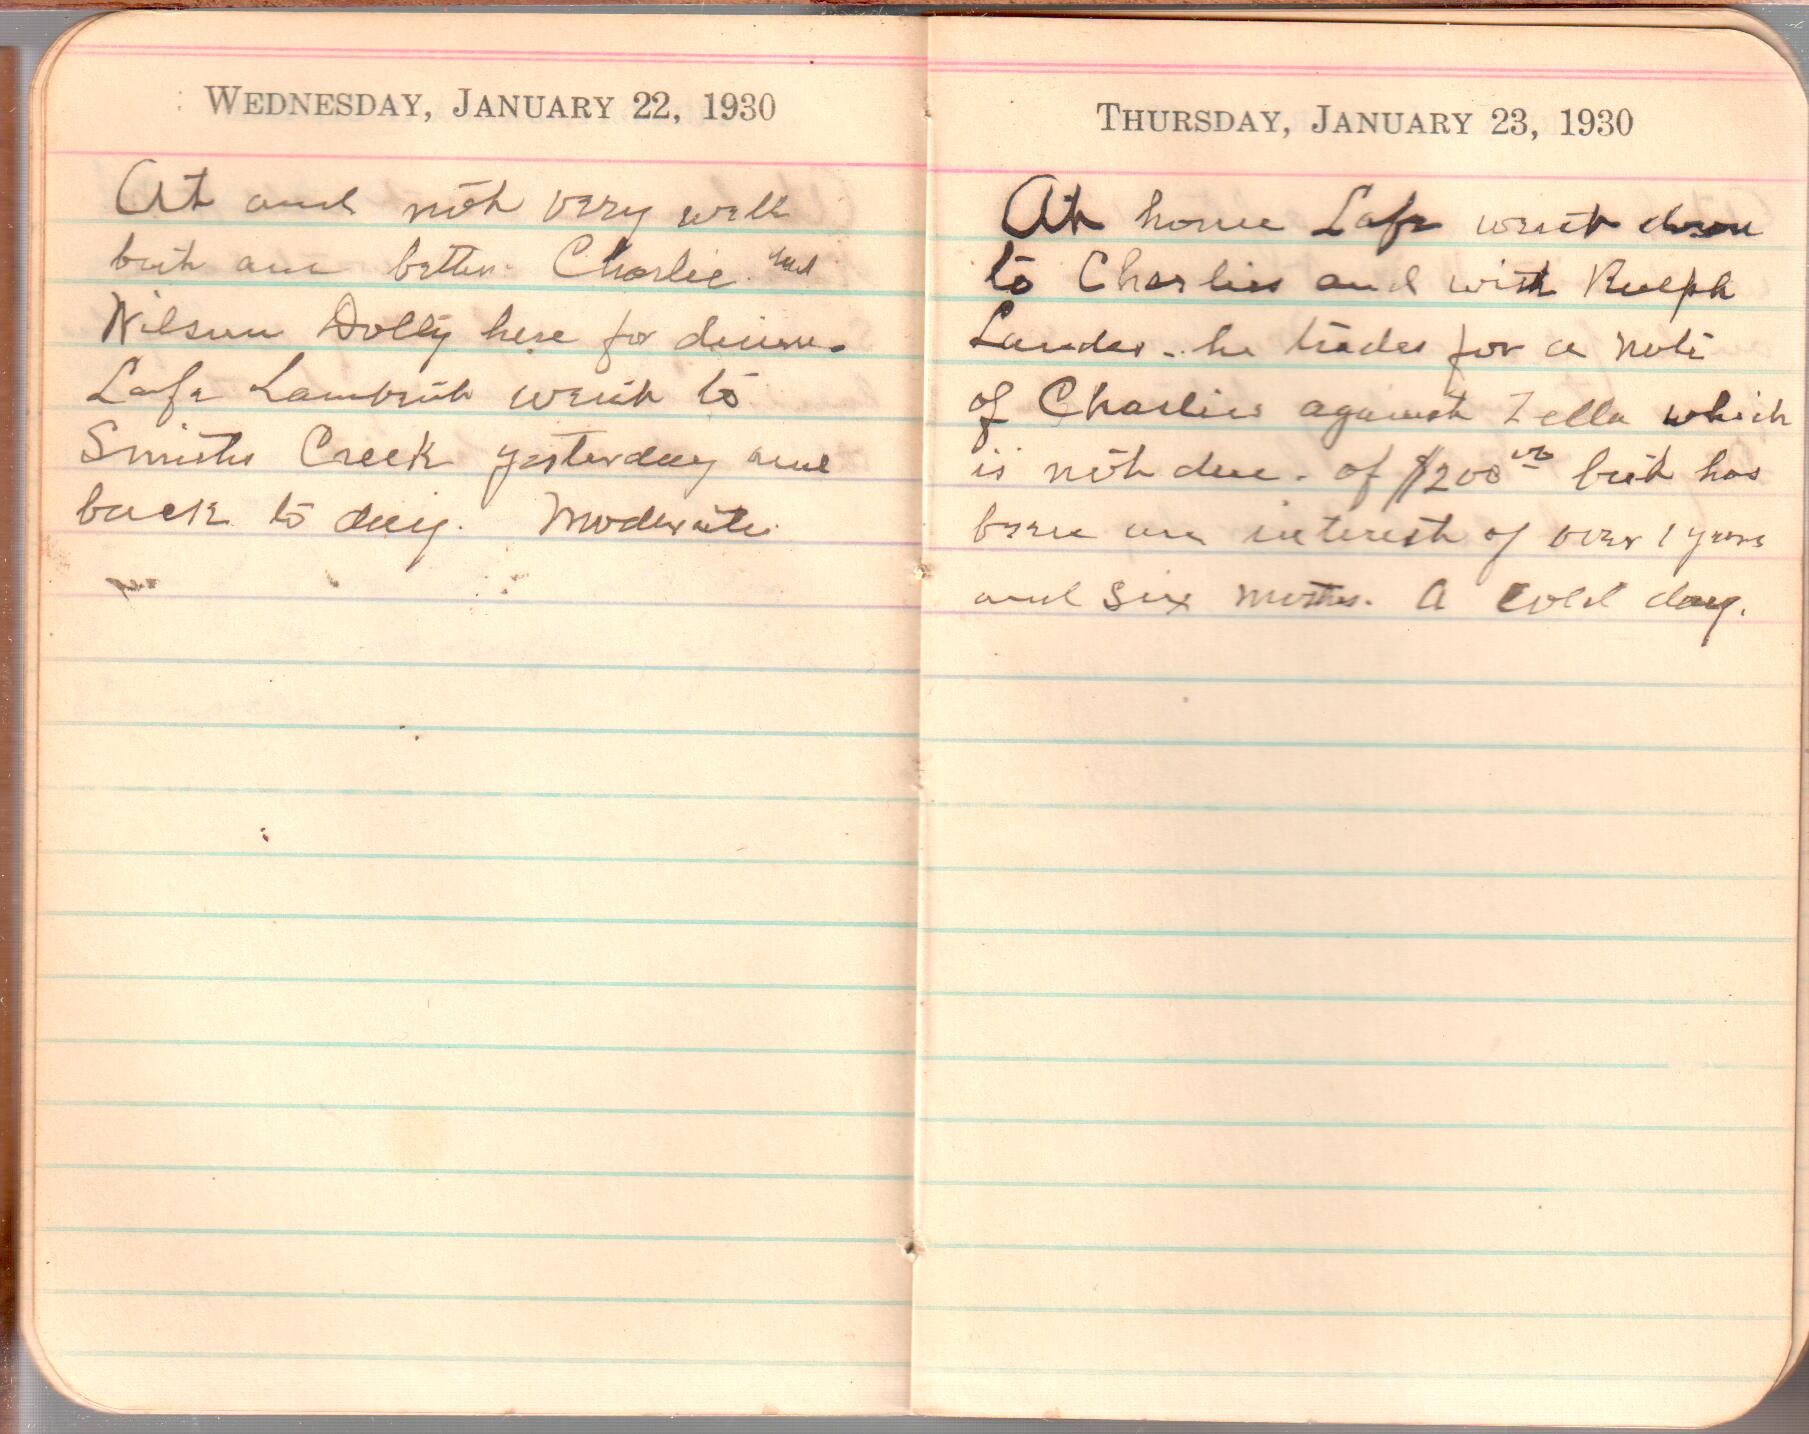 WEDNESDAY, JANUARY 22, 1930
At and not very well
but am better. Charlie and
Wilson Dolly here for dinner.
Lafe Lambert went to
Smiths Creek yesterday and
back to day. Moderate.
THURSDAY, JANUARY 23, 1930
At home Lafe went down
to Charlies and with Ralph
he trades for a note
of Charlies against Zella which
is not due. of $200 00 but has
been on interest of over 1 years
and six months. A cold day.